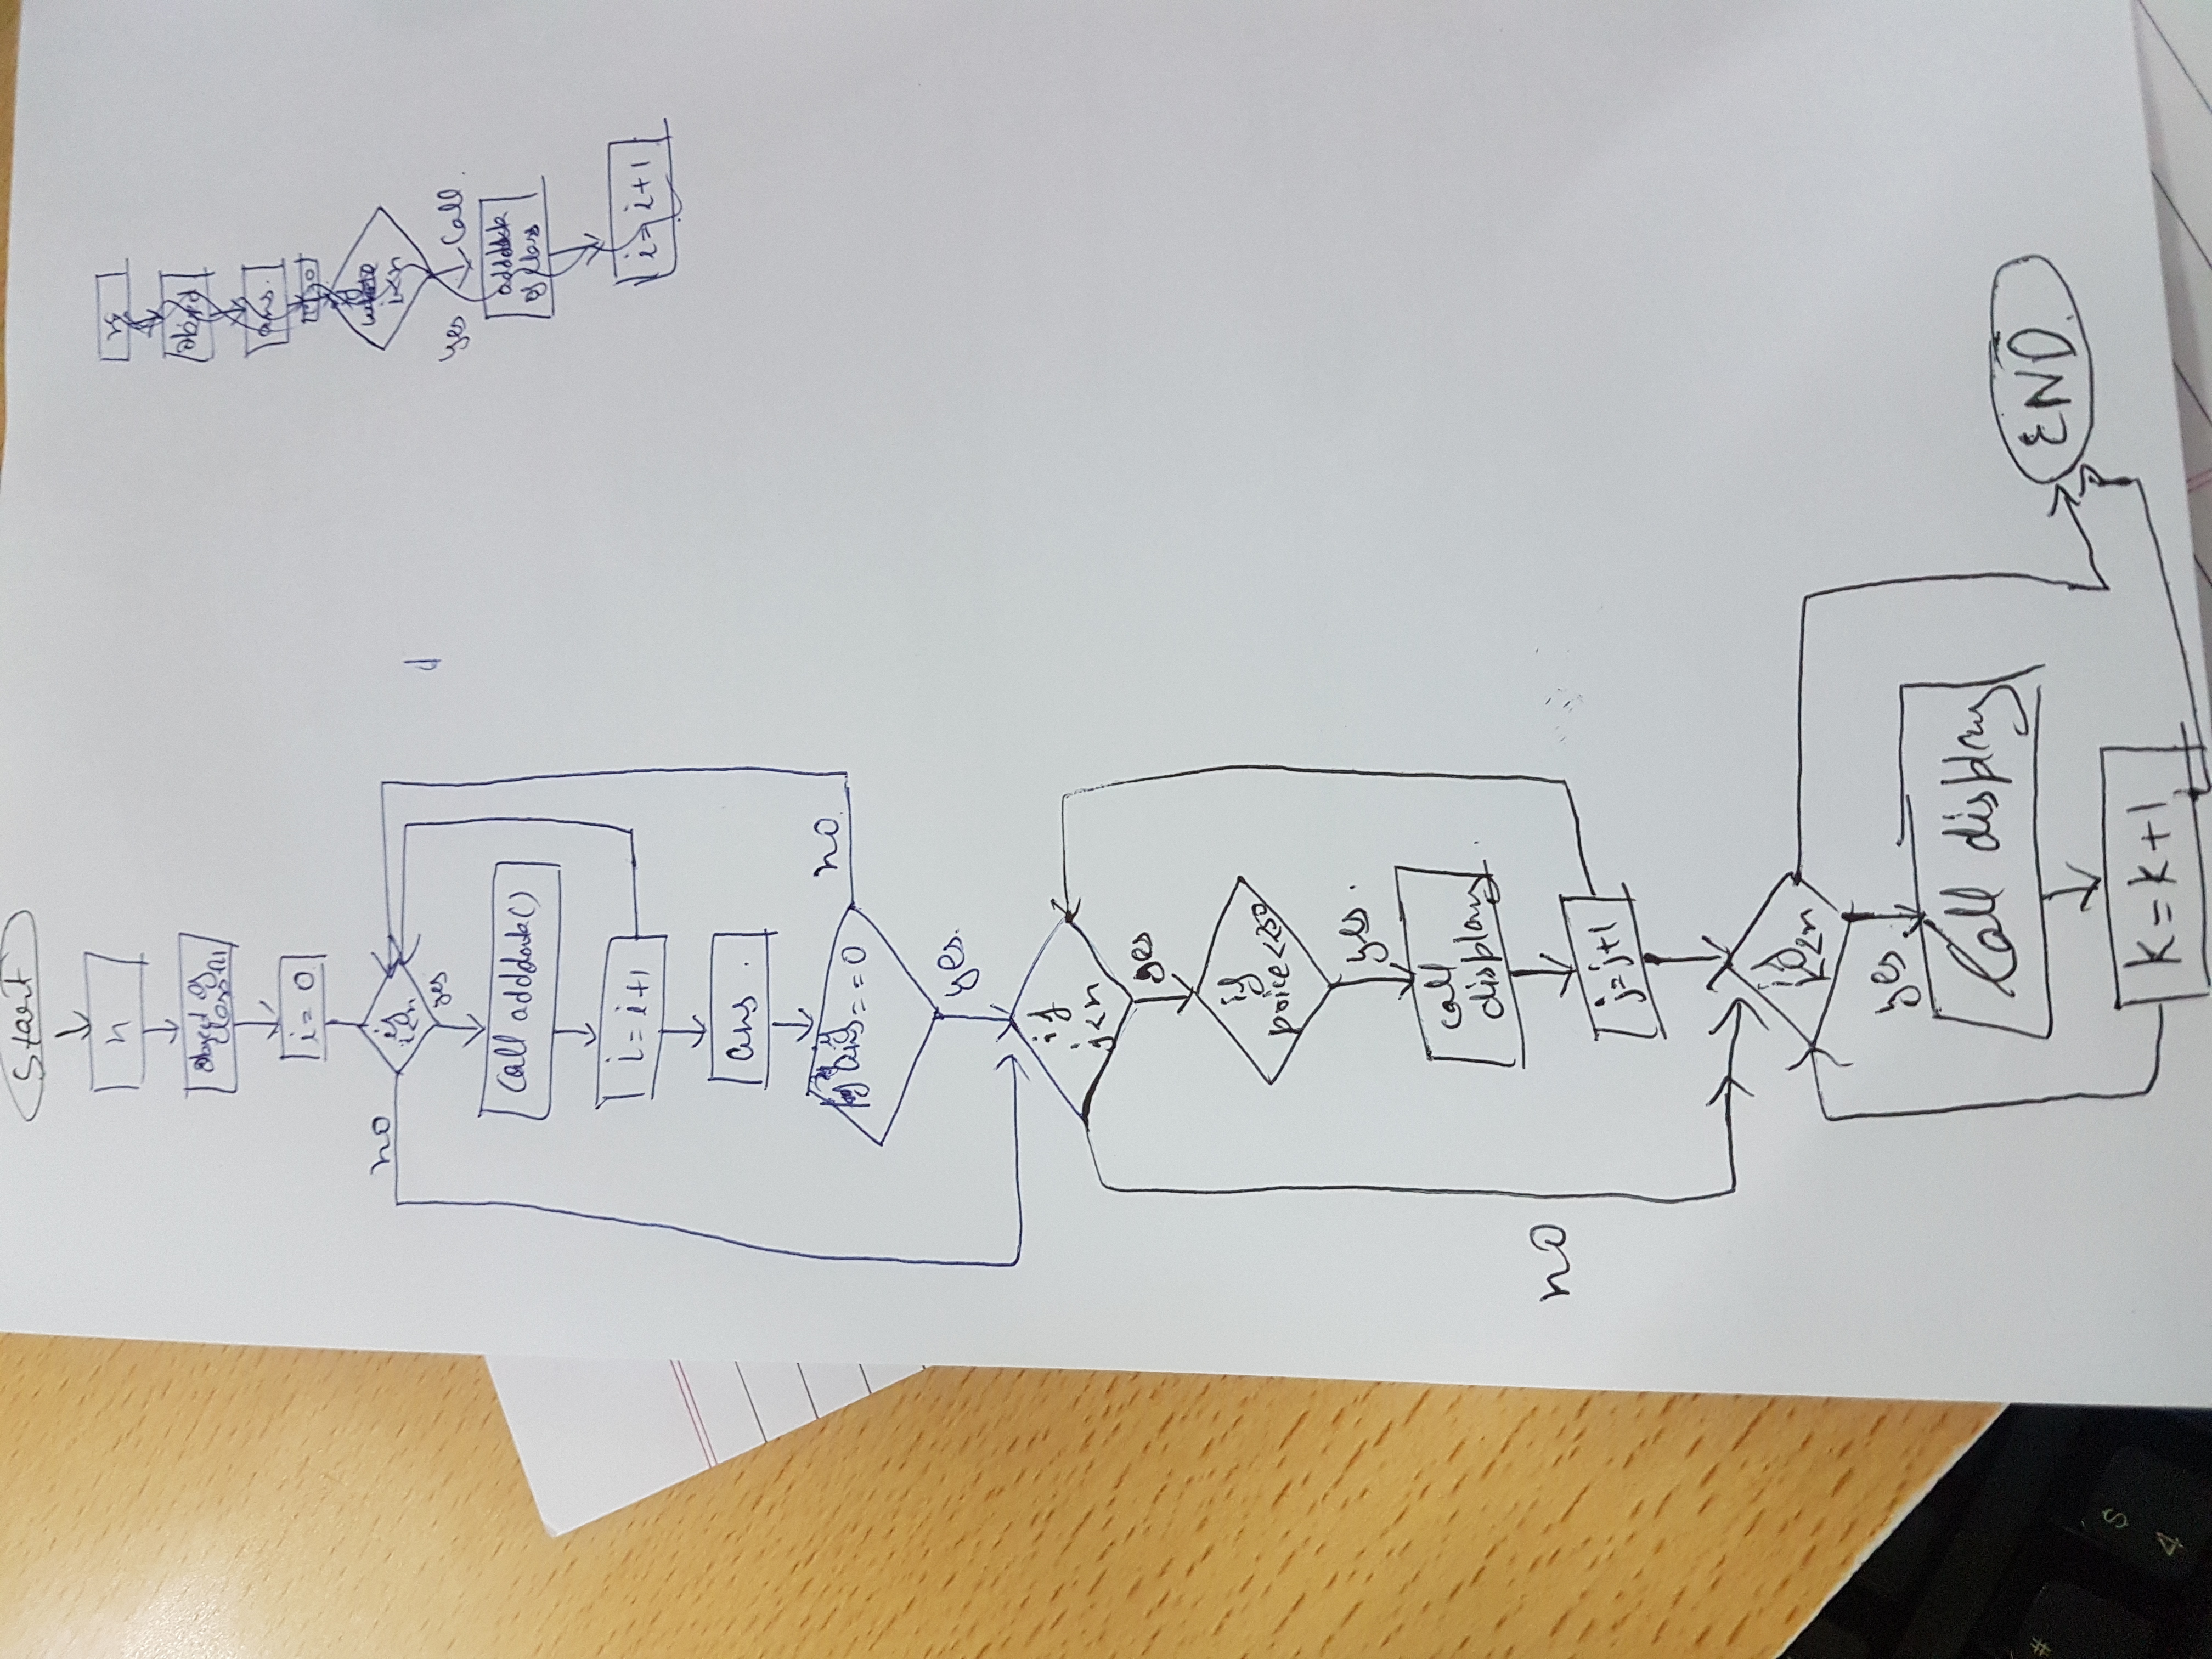 Start
n
object of
class
i = 0
if
i<n
no
yes
Call adddata()
i = i+1
ans.
ans == 0
no
yes.
if
j<n
yes
if
price<250
yes.
call
display
j=j+1
no
if
k<n
yes
Call display
k=k+1
END
object
ans.
while
i<n
yes
Call.
of class
i = i+1
#
$
4